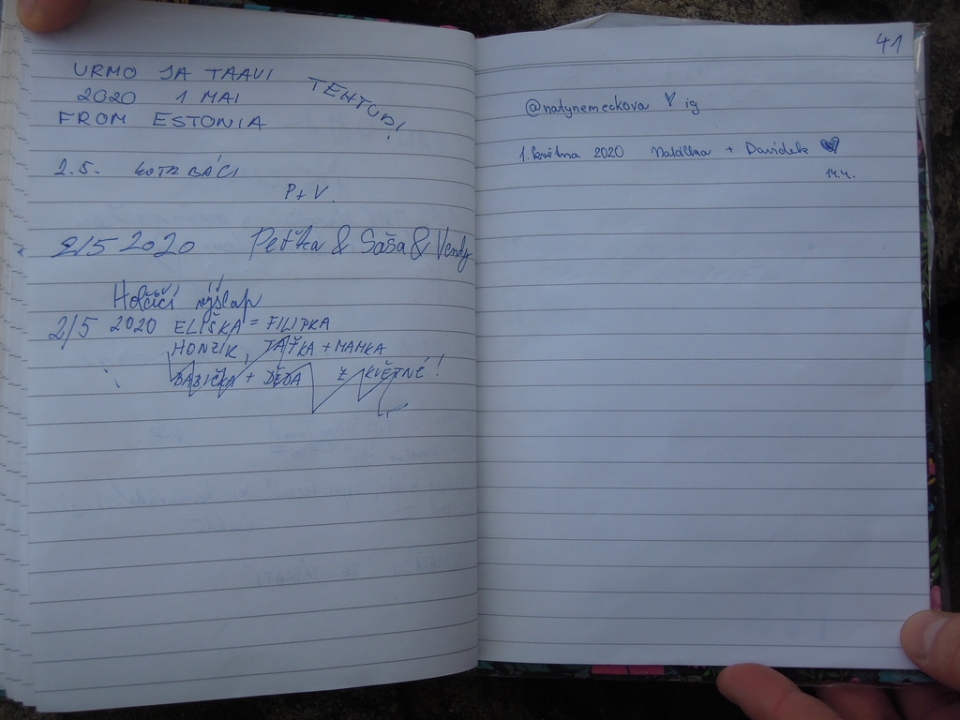 URMO JA TAAVI
2020 1 MAI
FROM ESTONIA
TEHTUD!
2.5. KOTRBÁČI
P+V.
2/5 2020 Peťka & Sáša & Vendy
Holčičí výšlap
2/5 2020 ELIŠKA = FILIPKA
HONZÍK, TAŤKA + MAMKA
BABIČKA + DĚDA Z KVĚTNÉ!
41
@natynemeckova ig
1. května 2020 Natálka + Davídek
14.4.